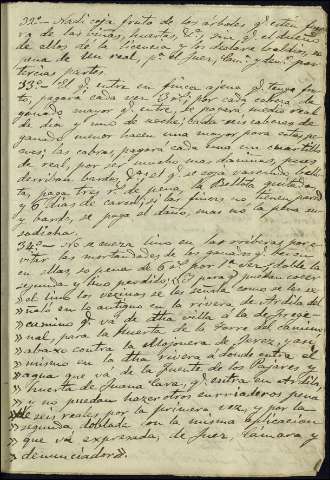 32ª.- Nadie coja fruto de los árboles, q.e estén fue-
ra de las viñas, huertas, &ª, sin q.e el dueño
de ellos dé la licencia y los declare baldíos, so
pena de un real, p.ª el Juez, Cam.ª y den.or por
tercias partes.
33ª.- El q.e entre en finca ajena q.e tenga fru-
to, pagará cada vez 3 rs. por cada cabeza de
ganado mayor q.e entre, de por sí, medio real
de día y uno de noche; cada seis cabezas de
ganado menor hacen una mayor para estas pe-
nas; las cabras, pagará cada una un cuartillo
de real, por ser mucho más dañinas, pues
derriban bardas, &ª; el q.e se coja vareando bello-
ta, paga tres rs. de pena, la Bellota quitada
y 6 días de carcel; si las fincas no tienen pared
y barda, se paga el daño, mas no la pena su-
sodicha.
34ª.- No se cueza lino en las riberas por e-
vitar las mortandades de los ganados q.e beben
en ellas, so pena de 6 rs. por 1ª vez, doble la
segunda y lino perdido, y para q.e puedan cocer
el lino los vecinos se les señala como se les se-
» ñaló en lo antiguo en la rivera de Ardila del
» camino q.e va de dha villa á la de Frege-
» nal, para la huerta de la Torre del camino
» abaxo contra la Mojonera de Jerez, y así
» mismo en la dha rivera á donde entra el
» agua que va de la fuente de los Pajares y
» huerta de Juana Lara, q.e entra en Ardila,
» y no puedan hazer otros enrriaderos pena
» de seis reales por la primera vez, y por la
» segunda doblada con la misma aplicacion
» que va expresada, de Juez, Camara y
» denunciador».